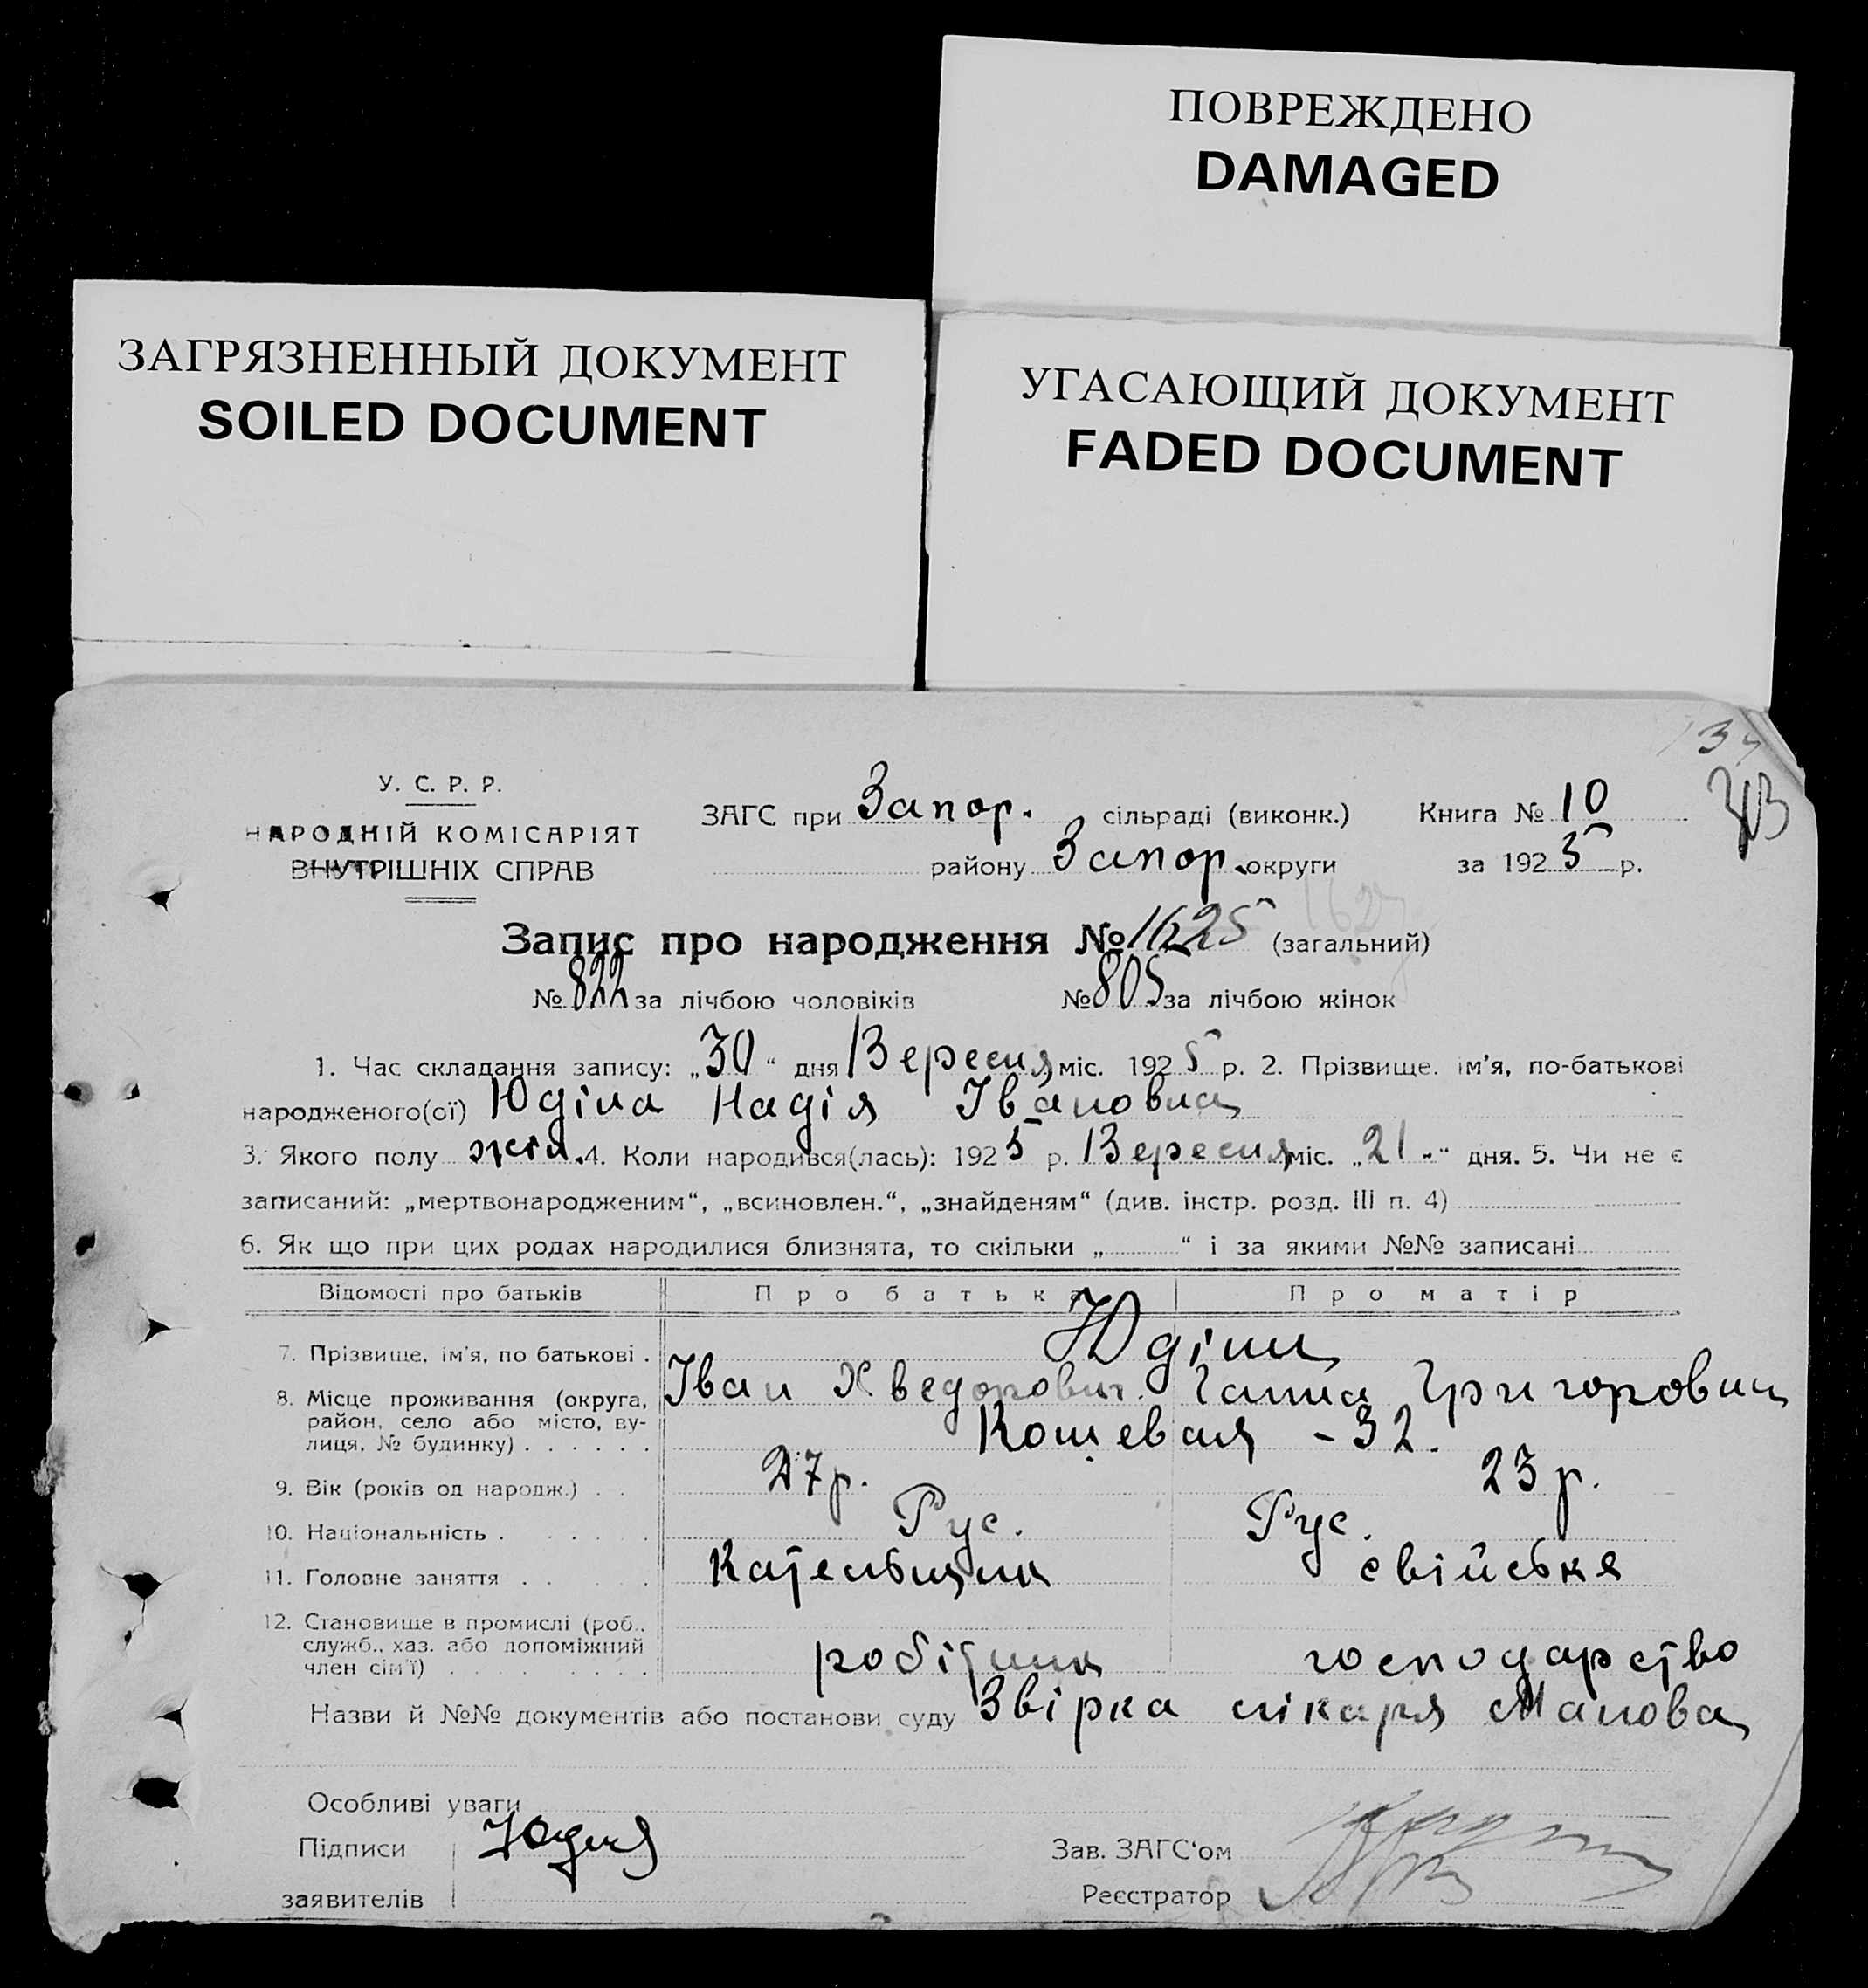 ПОВРЕЖДЕНО
DAMAGED
ЗАГРЯЗНЕННЫЙ ДОКУМЕНТ
SOILED DOCUMENT
УГАСАЮЩИЙ ДОКУМЕНТ
FADED DOCUMENT
У. С. Р. Р.
НАРОДНІЙ КОМІСАРІЯТ
ВНУТРІШНІХ СПРАВ
ЗАГС при Запор. сільраді (виконк.) Книга № 10
району Запор. округи за 1925 р.
Запис про народження № 1625 (загальний)
№ 822 за лічбою чоловіків № 805 за лічбою жінок
1. Час складання запису: „30“ дня Вересня міс. 1925 р. 2. Прізвище. ім'я, по-батькові
народженого(ої) Юдіна Надія Івановна
3. Якого полу жін. 4. Коли народився(лась): 1925 р. Вересня міс. „21“ дня. 5. Чи не є
записаний: „мертвонародженим“, „всиновлен.“, „знайденям“ (див. інстр. розд. III п. 4)
6. Як що при цих родах народилися близнята, то скільки „ “ і за якими №№ записані
Відомості про батьків Про батька Про матір
7. Прізвище, ім'я, по батькові . Юдіни
Іван Хведорович. Ганна Григоровна
8. Місце проживання (округа, район, село або місто, вулиця, № будинку) . . . . . . Кошевая - 32.
9. Вік (років од народж.) . . 27 р. 23 р.
10. Національність . . . . . Рус. Рус.
11. Головне заняття . . . . Кательщик свійське
12. Становище в промислі (роб., служб., хаз. або допоміжний член сім'ї) . . . . . . . робітник господарство
Назви й №№ документів або постанови суду Звірка лікаря Манова
Особливі уваги
Підписи Юдин
заявителів
Зав. ЗАГС'ом
Реєстратор